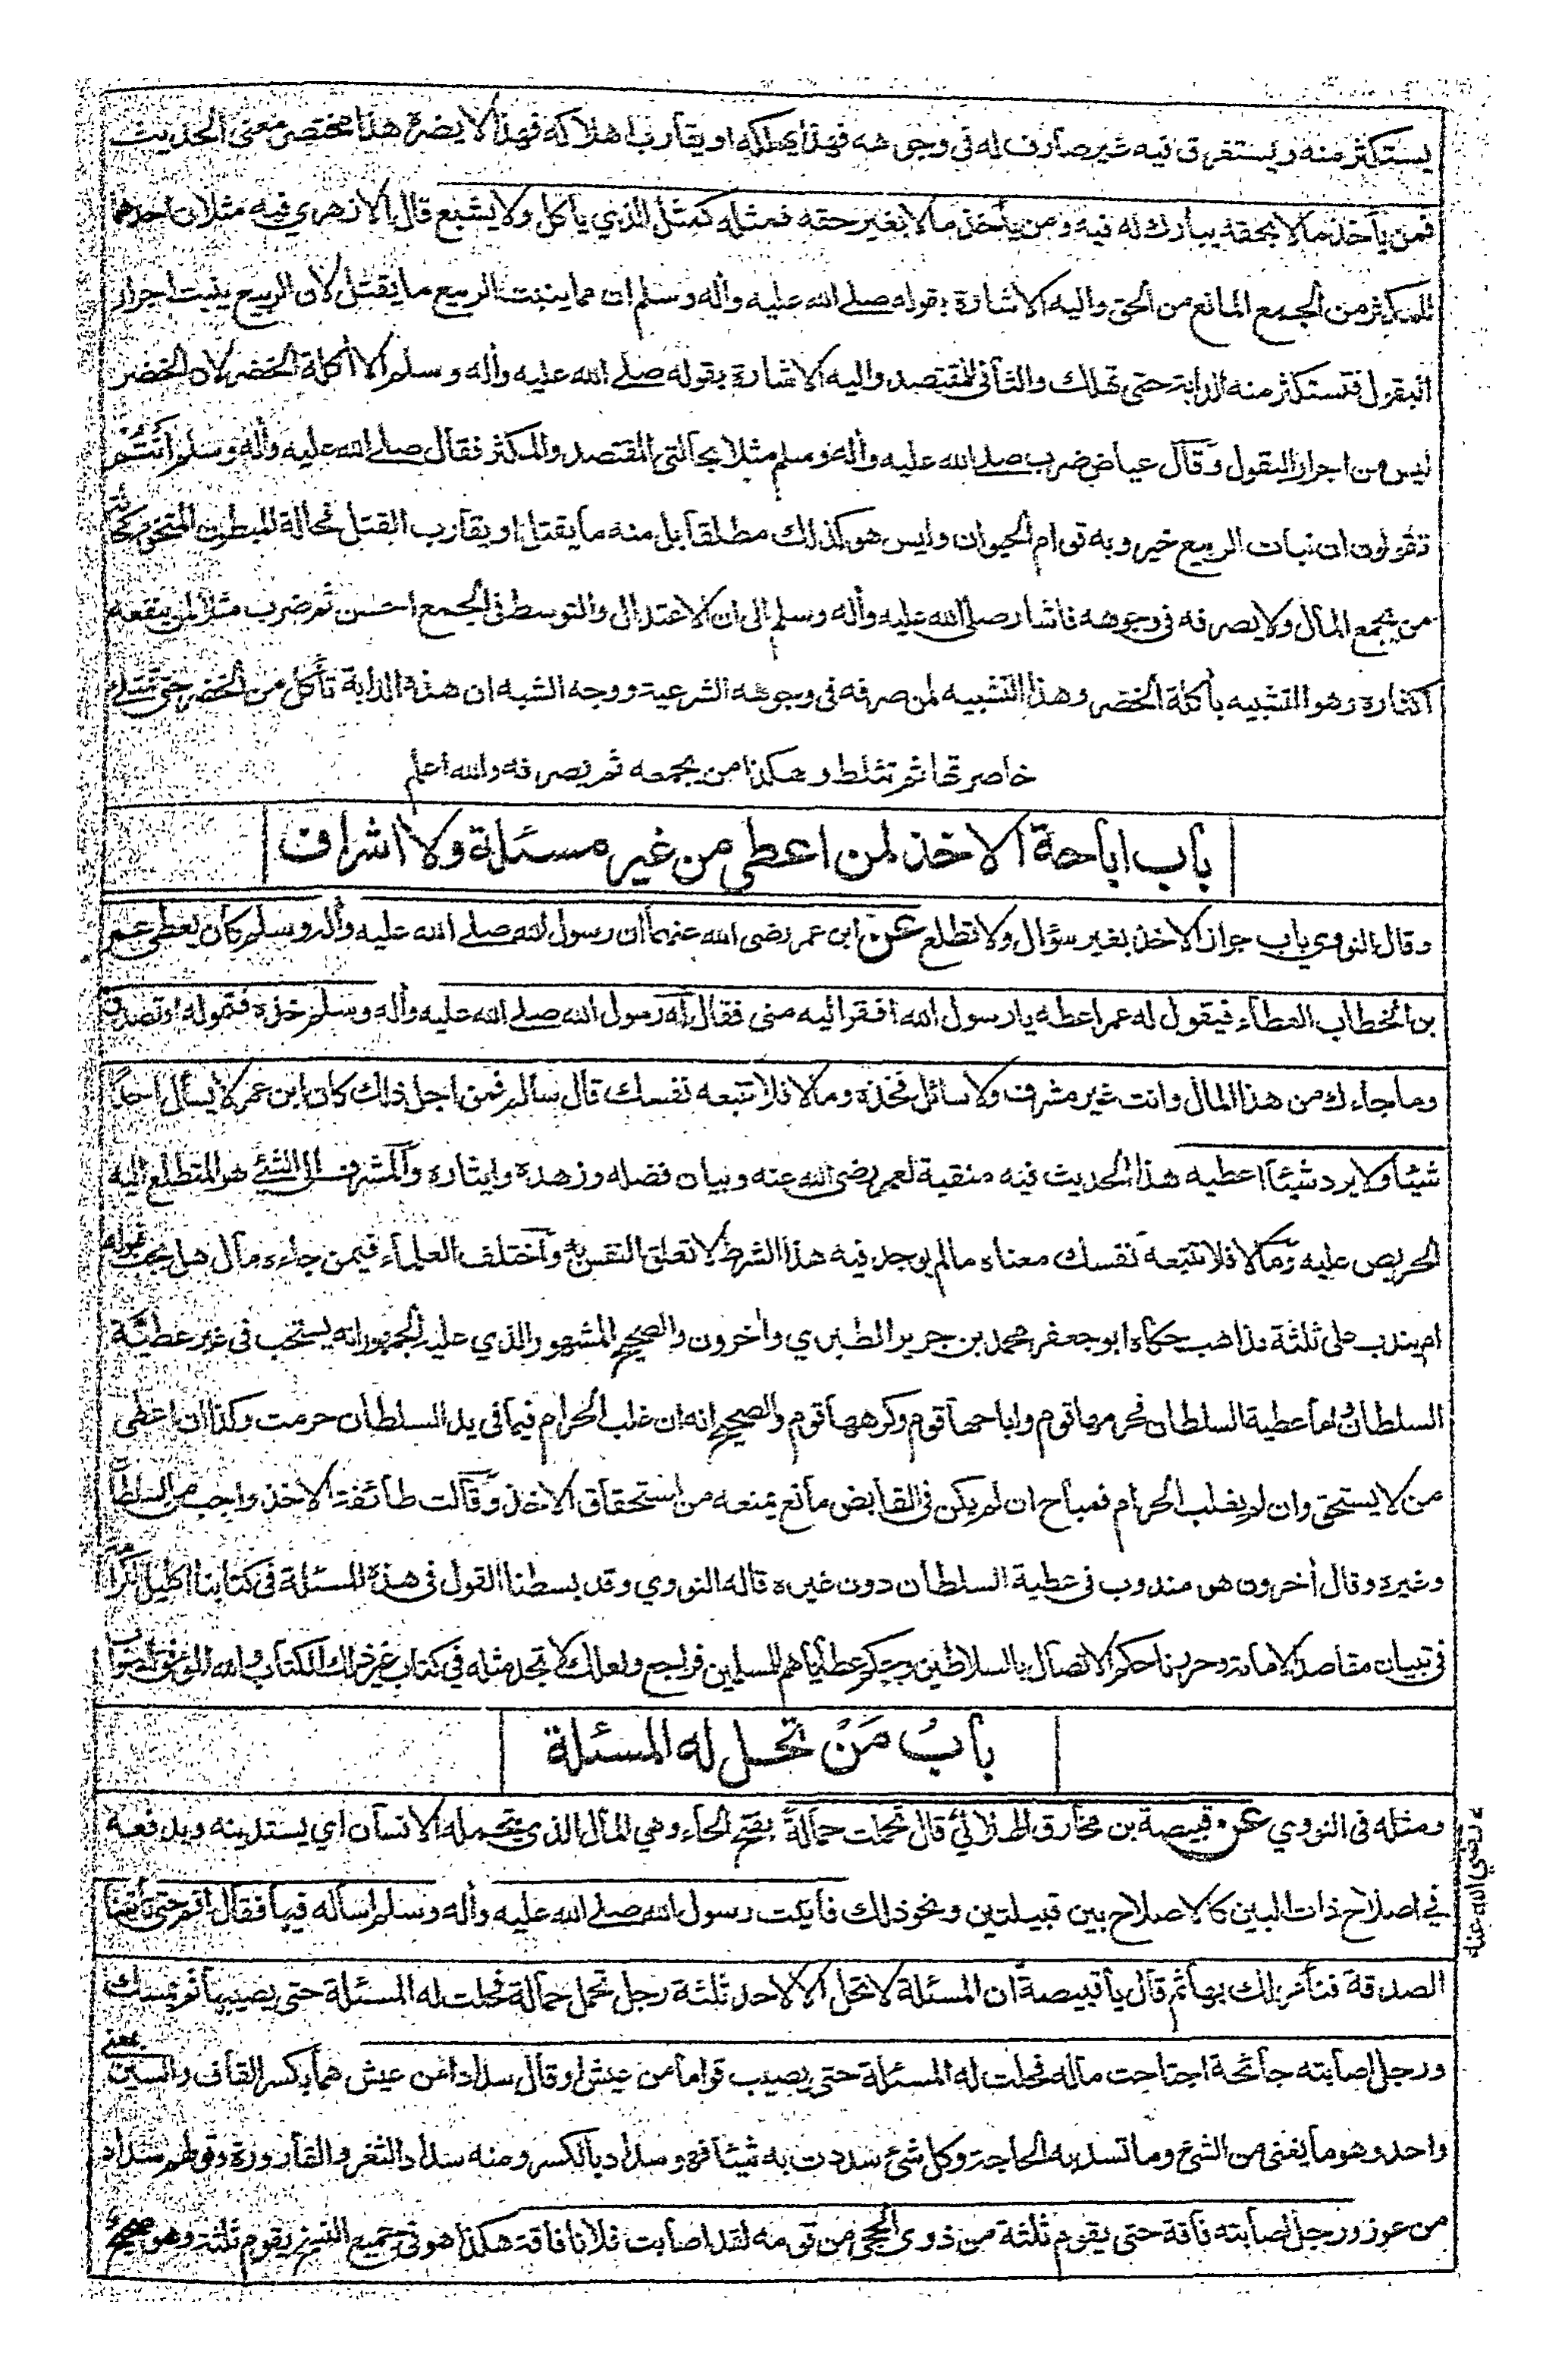 يستكثر منه ويستغرق فيه غير صارف له في وجوهه فهذا يهلكه او يقارب اهلاكه فهذا لا يضره هذا مختصر معنى الحديث
فمن يأخذ مالا بحقه يبارك له فيه ومن يأخذ مالا بغير حقه فمثله كمثل الذي يأكل ولا يشبع قال الازهري فيه مثلان احدهما
للمكثر من الجمع المانع من الحق واليه الاشارة بقوله صلى الله عليه وأله وسلم ان مما ينبت الربيع ما يقتل لان الربيع ينبت احرار
البقول فتستكثر منه الدابة حتى تهلك والثاني للمقتصد واليه الاشارة بقوله صلے الله عليه وأله وسلم الا أكلة الخضر لان الخضر
ليس من احرار البقول وقال عياض ضرب صلے الله عليه وأله وسلم مثلا بحالتي المقتصد والمكثر فقال صلے الله عليه وأله وسلم أنتم
تقولون ان نبات الربيع خير وبه قوام الحيوان وليس هو كذلك مطلقا بل منه ما يقتل او يقارب القتل فحالة المبطون المتخوم كحالة
من يجمع المال ولا يصرفه في وجوهه فاشار صلى الله عليه وأله وسلم الى ان الاعتدال والتوسط في الجمع احسن ثم ضرب مثلا لمن ينفعه
اكثاره وهو التشبيه بأكلة الخضر وهذا التشبيه لمن صرفه في وجوهه الشرعية ووجه الشبه ان هذه الدابة تأكل من الخضر حتى تمتلئ
خاصرتها ثم تثلط وهكذا من يجمعه ثم يصرفه والله اعلم
باب اباحة الاخذ لمن اعطي من غير مسئلة ولا اشراف
وقال النووي باب جواز الاخذ بغير سؤال ولا تطلع عن ابن عمر رضى الله عنهما ان رسول الله صلے الله عليه وأله وسلم كان يعطي عمر
بن الخطاب العطاء فيقول له عمر اعطه يا رسول الله افقر اليه مني فقال له رسول الله صلے الله عليه وأله وسلم خذه فتموله او تصدق
وما جاءك من هذا المال وانت غير مشرف ولا سائل فخذه وما لا فلا تتبعه نفسك قال سالم فمن اجل ذلك كان ابن عمر لا يسأل احدا
شيئا ولا يرد شيئا اعطيه هذا الحديث فيه منقبة لعمر رضى الله عنه وبيان فضله وزهده وايثاره والمشرف الى الشئ هو المتطلع اليه
الحريص عليه وما لا فلا تتبعه نفسك معناه ما لم يوجد فيه هذا الشرط لا تعلق النفس به واختلف العلماء فيمن جاءه مال هل يجب قبوله
ام يندب على ثلثة مذاهب حكاه ابو جعفر محمد بن جرير الطبري وأخرون والصحيح المشهور الذي عليه الجمهور انه يستحب في غير عطية
السلطان واما عطية السلطان فحرمها قوم واباحها قوم وكرهها قوم والصحيح انه ان غلب الحرام فيما في يد السلطان حرمت وكذا ان اعطي
من لا يستحق وان لم يغلب الحرام فمباح ان لم يكن في القابض مانع يمنعه من استحقاق الاخذ وقالت طائفة الاخذ واجب من السلطان
وغيره وقال أخرون هو مندوب في عطية السلطان دون غيره قاله النووي وقد بسطنا القول في هذه المسئلة في كتابنا اكليل الكرامة
في تبيان مقاصد الامامة وحررنا حكم الاتصال بالسلاطين وحكم عطاياهم للمسلمين فراجع ولعلك لا تجد مثله في كتاب غير ذلك الكتاب والله الموفق للصواب
باب مَنْ تحل له المسئلة
ومثله في النووي عن قبيصة بن مخارق الهلالي رضي الله عنه قال تحملت حمالة بفتح الحاء وهي المال الذي يتحمله الانسان اي يستدينه ويدفعه
في اصلاح ذات البين كالاصلاح بين قبيلتين ونحو ذلك فأتيت رسول الله صلے الله عليه وأله وسلم اسأله فيها فقال اقم حتى تأتينا
الصدقة فنأمر لك بها ثم قال يا قبيصة ان المسئلة لا تحل الا لاحد ثلثة رجل تحمل حمالة فحلت له المسئلة حتى يصيبها ثم يمسك
ورجل اصابته جائحة اجتاحت ماله فحلت له المسئلة حتى يصيب قواما من عيش او قال سدادا من عيش هما بكسر القاف والسين بمعنى
واحد وهو ما يغني من الشئ وما تسد به الحاجة وكل شئ سددت به شيئا فهو سداد بالكسر ومنه سداد الثغر والقارورة وقولهم سداد
من عوز ورجل اصابته فاقة حتى يقوم ثلثة من ذوى الحجى من قومه لقد اصابت فلانا فاقة هكذا هو في جميع النسخ يقوم ثلثة وهو صحيح